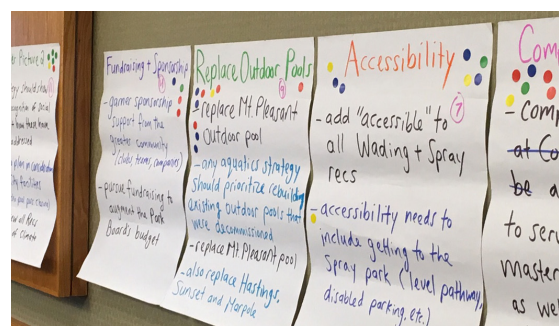 er Picture 2
Fundraising + Sponsorship
- garner sponsorship
support from the
greater community
(clubs teams companies)
- pursue fundraising to
augment the Park
Board's budget
Replace Outdoor Pools
9
- replace Mt. Pleasant
Outdoor pool
- any aquatics strategy
should prioritize rebuilding
existing outdoor pools that
were decommissioned
- replace Mt. Pleasant pool
- also replace Hastings,
Sunset and Marpole
Accessibility
7
- add "accessible" to
all Wading + Spray
recs
- accessibility needs to
include getting to the
Spray park (level pathway,
disabled parking, etc.)
Com
- Comp
at Co
be a
to serv
master
as wo